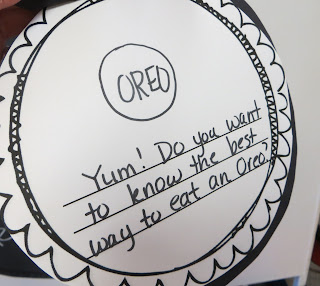 OREO
Yum! Do you want
to know the best
way to eat an Oreo?